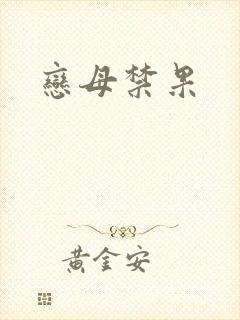 戀母禁果
黃金安